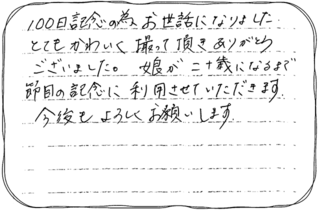 100日記念の為、お世話になりました
とてもかわいく撮って頂きありがとう
ございました。娘が二十歳になるまで
節目の記念に利用させていただきます.
今後もよろしくお願いします.